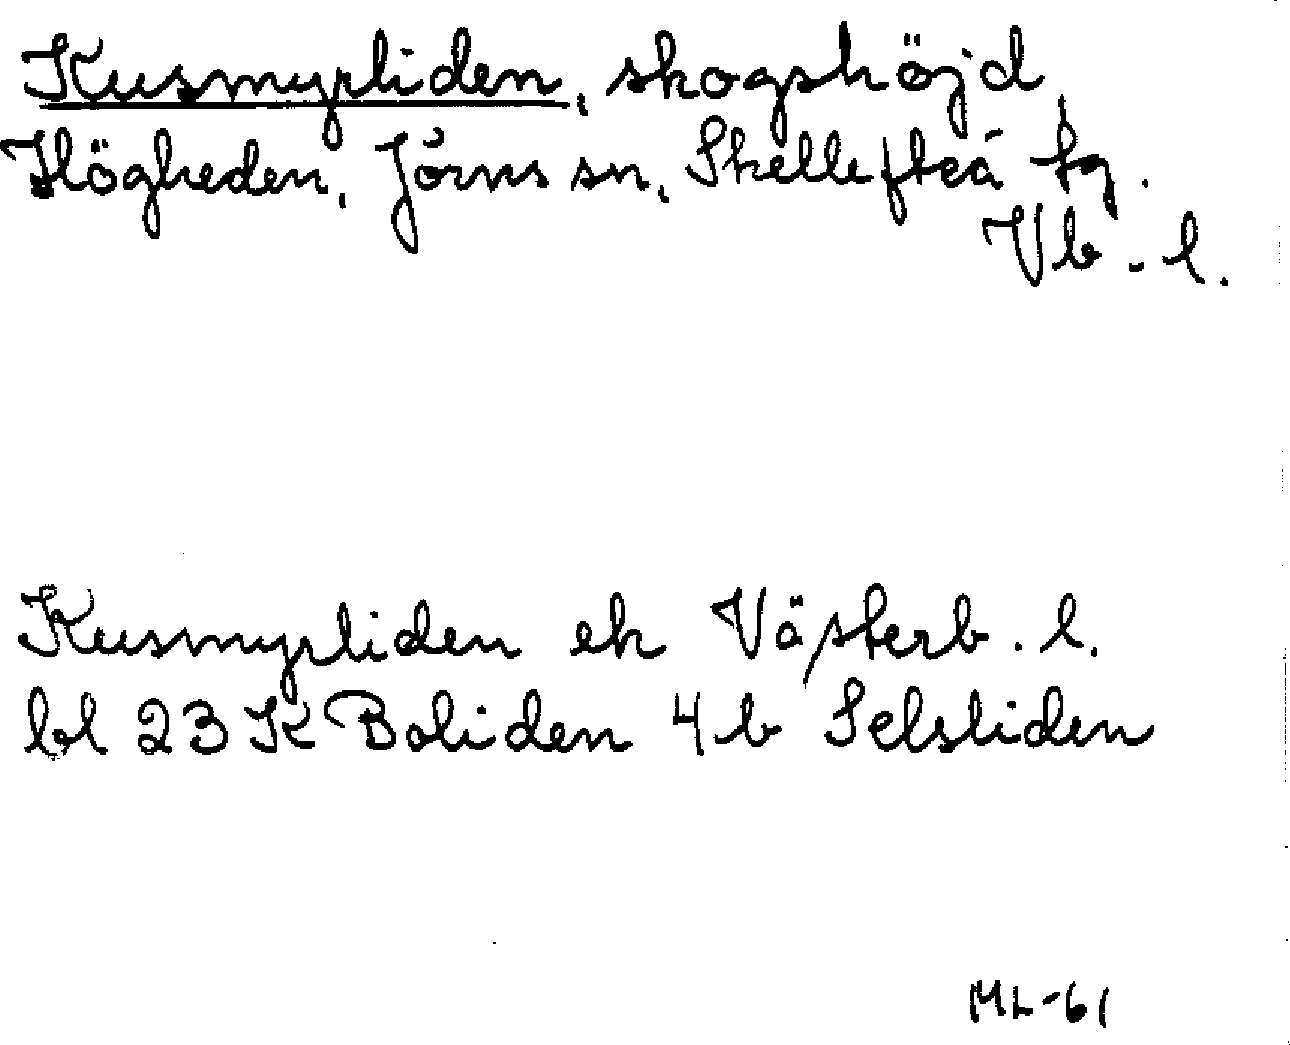 Kusmyrliden, skogshöjd,
Högheden, Jörns sn, Skellefteå tg.
Vb.l.
Kusmyrliden ek Västerb. l.
bl 23 K Boliden 4 b Selsliden
ML-61